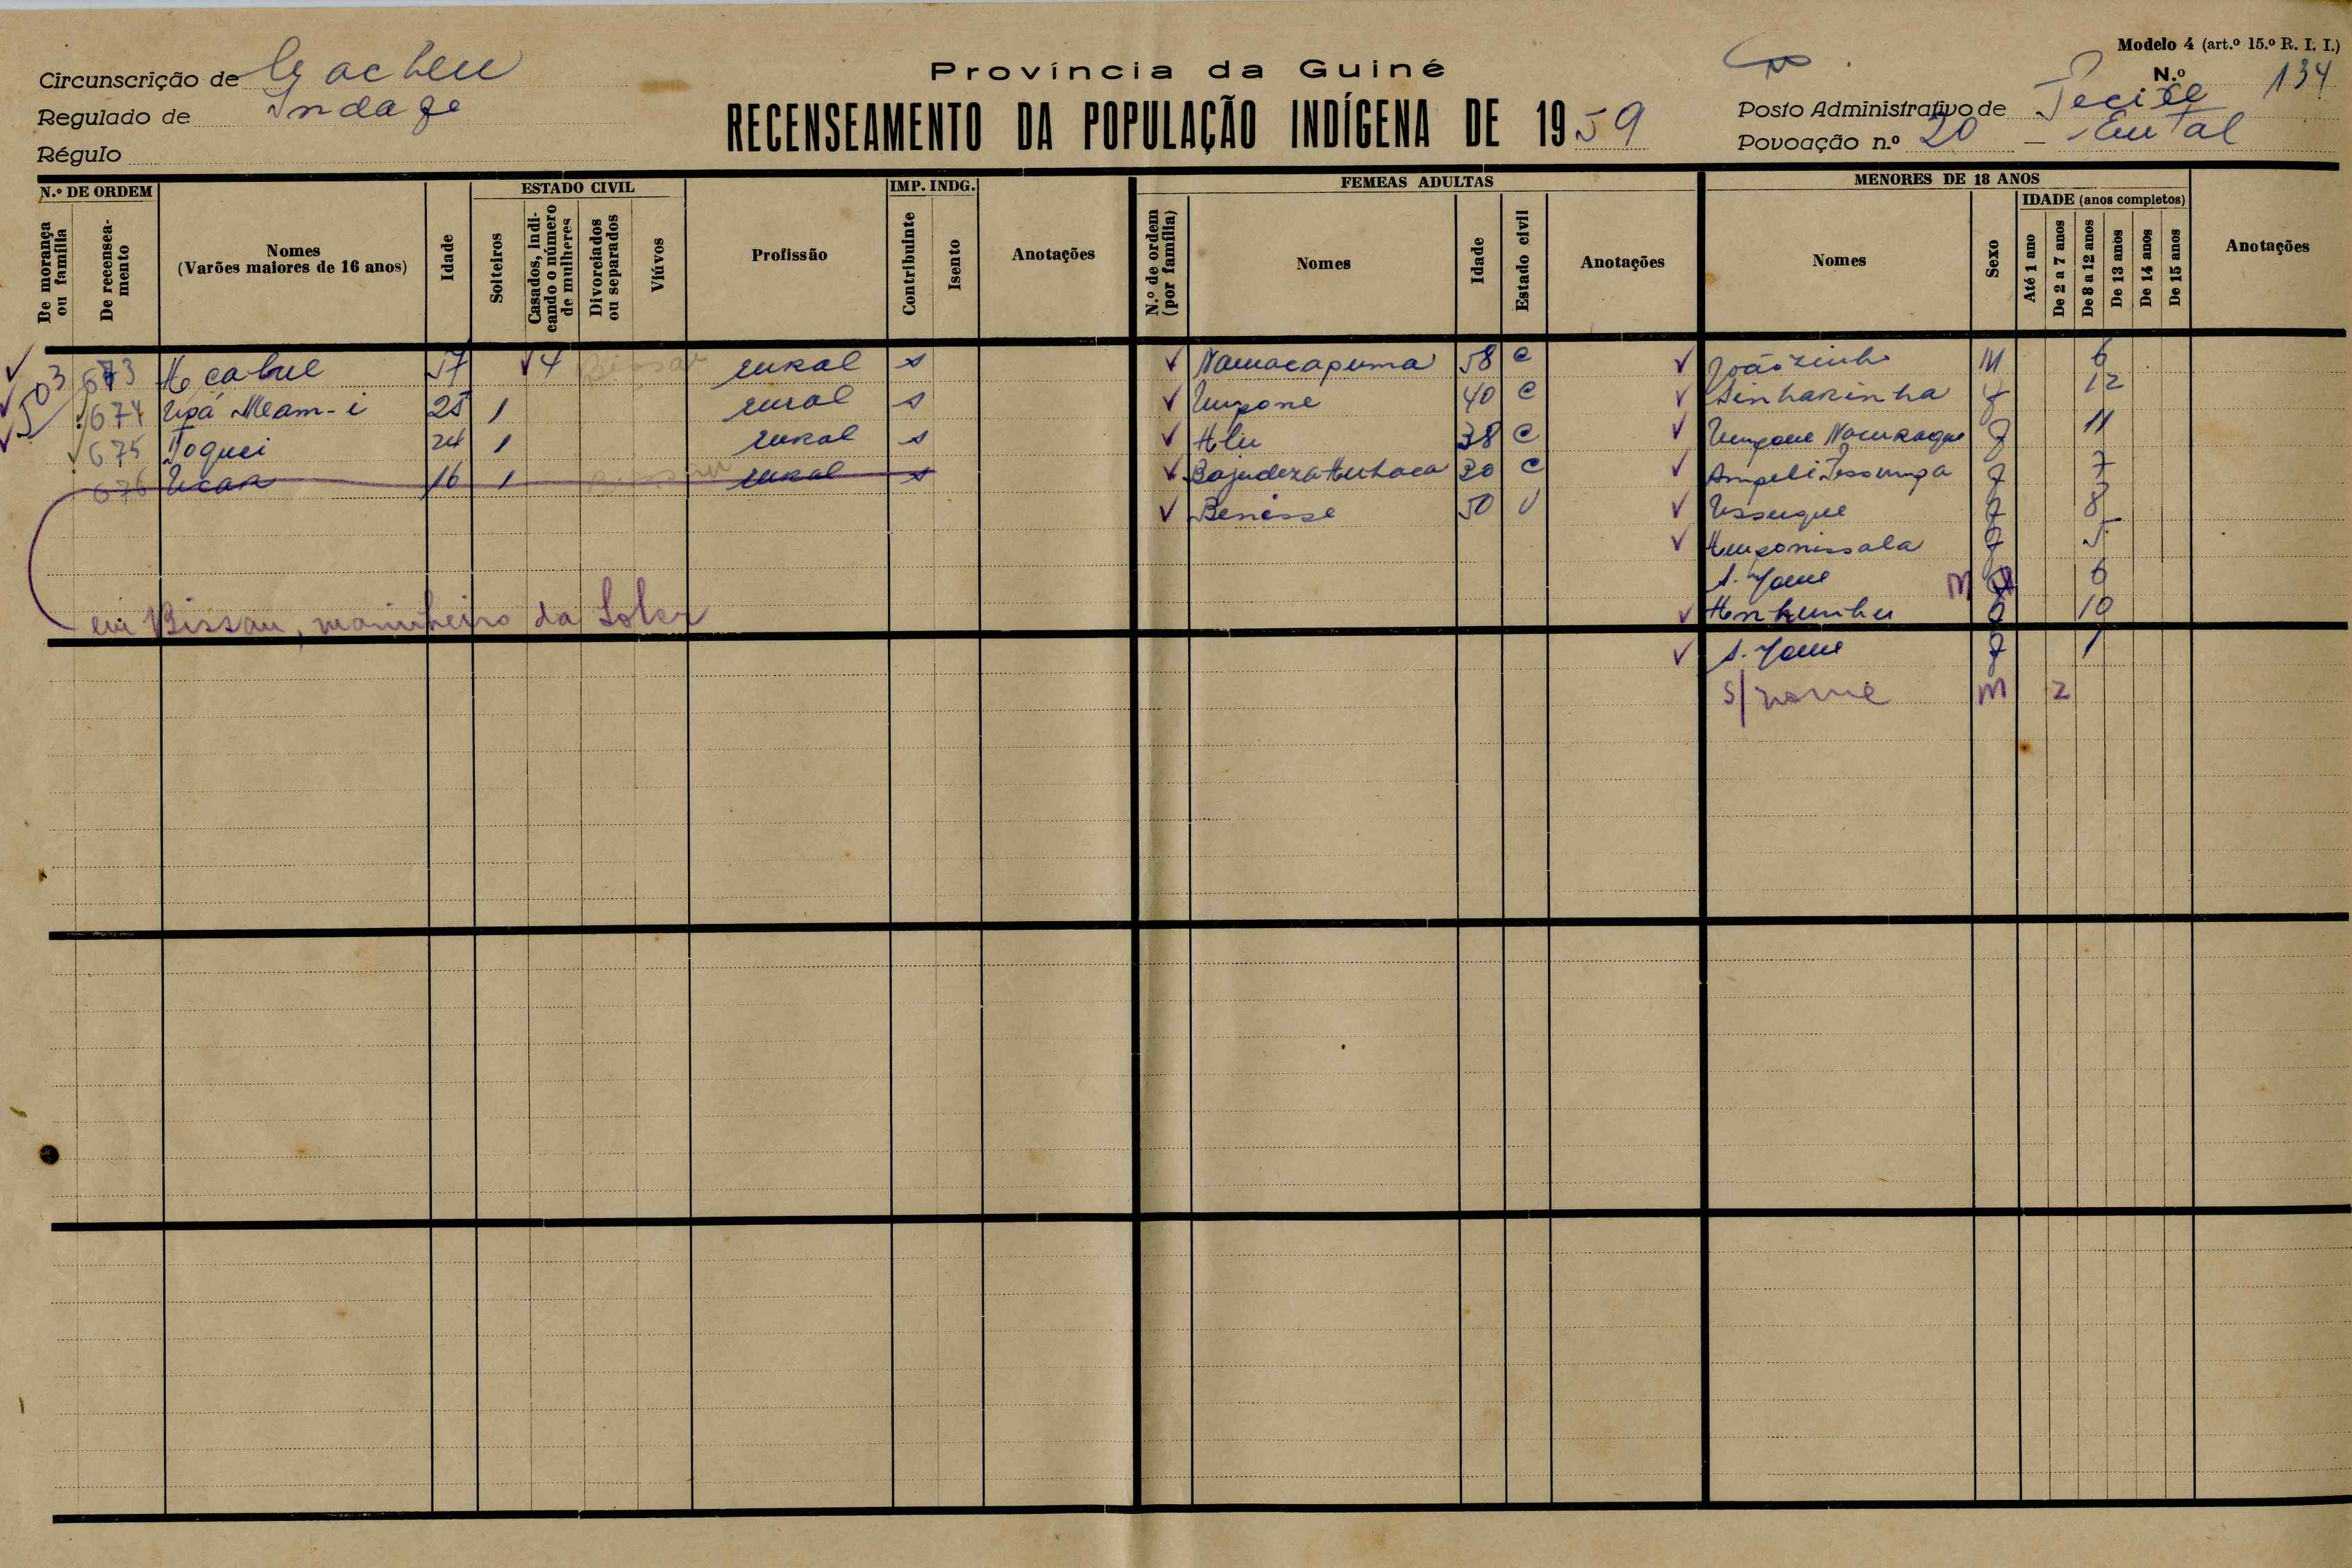 Modelo 4 (art.º 15.º R. I. I.)
Circunscrição de Cacheu
Província da Guiné
N.º 134
Regulado de
RECENSEAMENTO DA POPULAÇÃO INDÍGENA DE 1959
Posto Administrativo de
Régulo
Povoação n.º 20 -
N.º DE ORDEM
De morança ou família
De recenseamento
Nomes
(Varões maiores de 16 anos)
Idade
ESTADO CIVIL
Solteiros
Casados, indicando o número de mulheres
Divorciados ou separados
Viúvos
Profissão
IMP. INDG.
Contribuinte
Isento
Anotações
FEMEAS ADULTAS
N.º de ordem (por família)
Nomes
Idade
Estado civil
Anotações
MENORES DE 18 ANOS
Nomes
Sexo
IDADE (anos completos)
Até 1 ano
De 2 a 7 anos
De 8 a 12 anos
De 13 anos
De 14 anos
De 15 anos
Anotações
503 673 57 4 Bissau rural s
674 25 1 rural s
675 Toquei 24 1 rural s
676 Ucar 16 1 Bissau rural s
em Bissau, marinheiro da
Namacapuma 58 C
Umpone 40 C
38 C
C
Benisse 50 V
Joãozinho M 6
Sinharinha f 12
f 11
f 7
f 8
f 5
S. Nome M 6
f 10
S. Nome f 1
S/ nome M 2